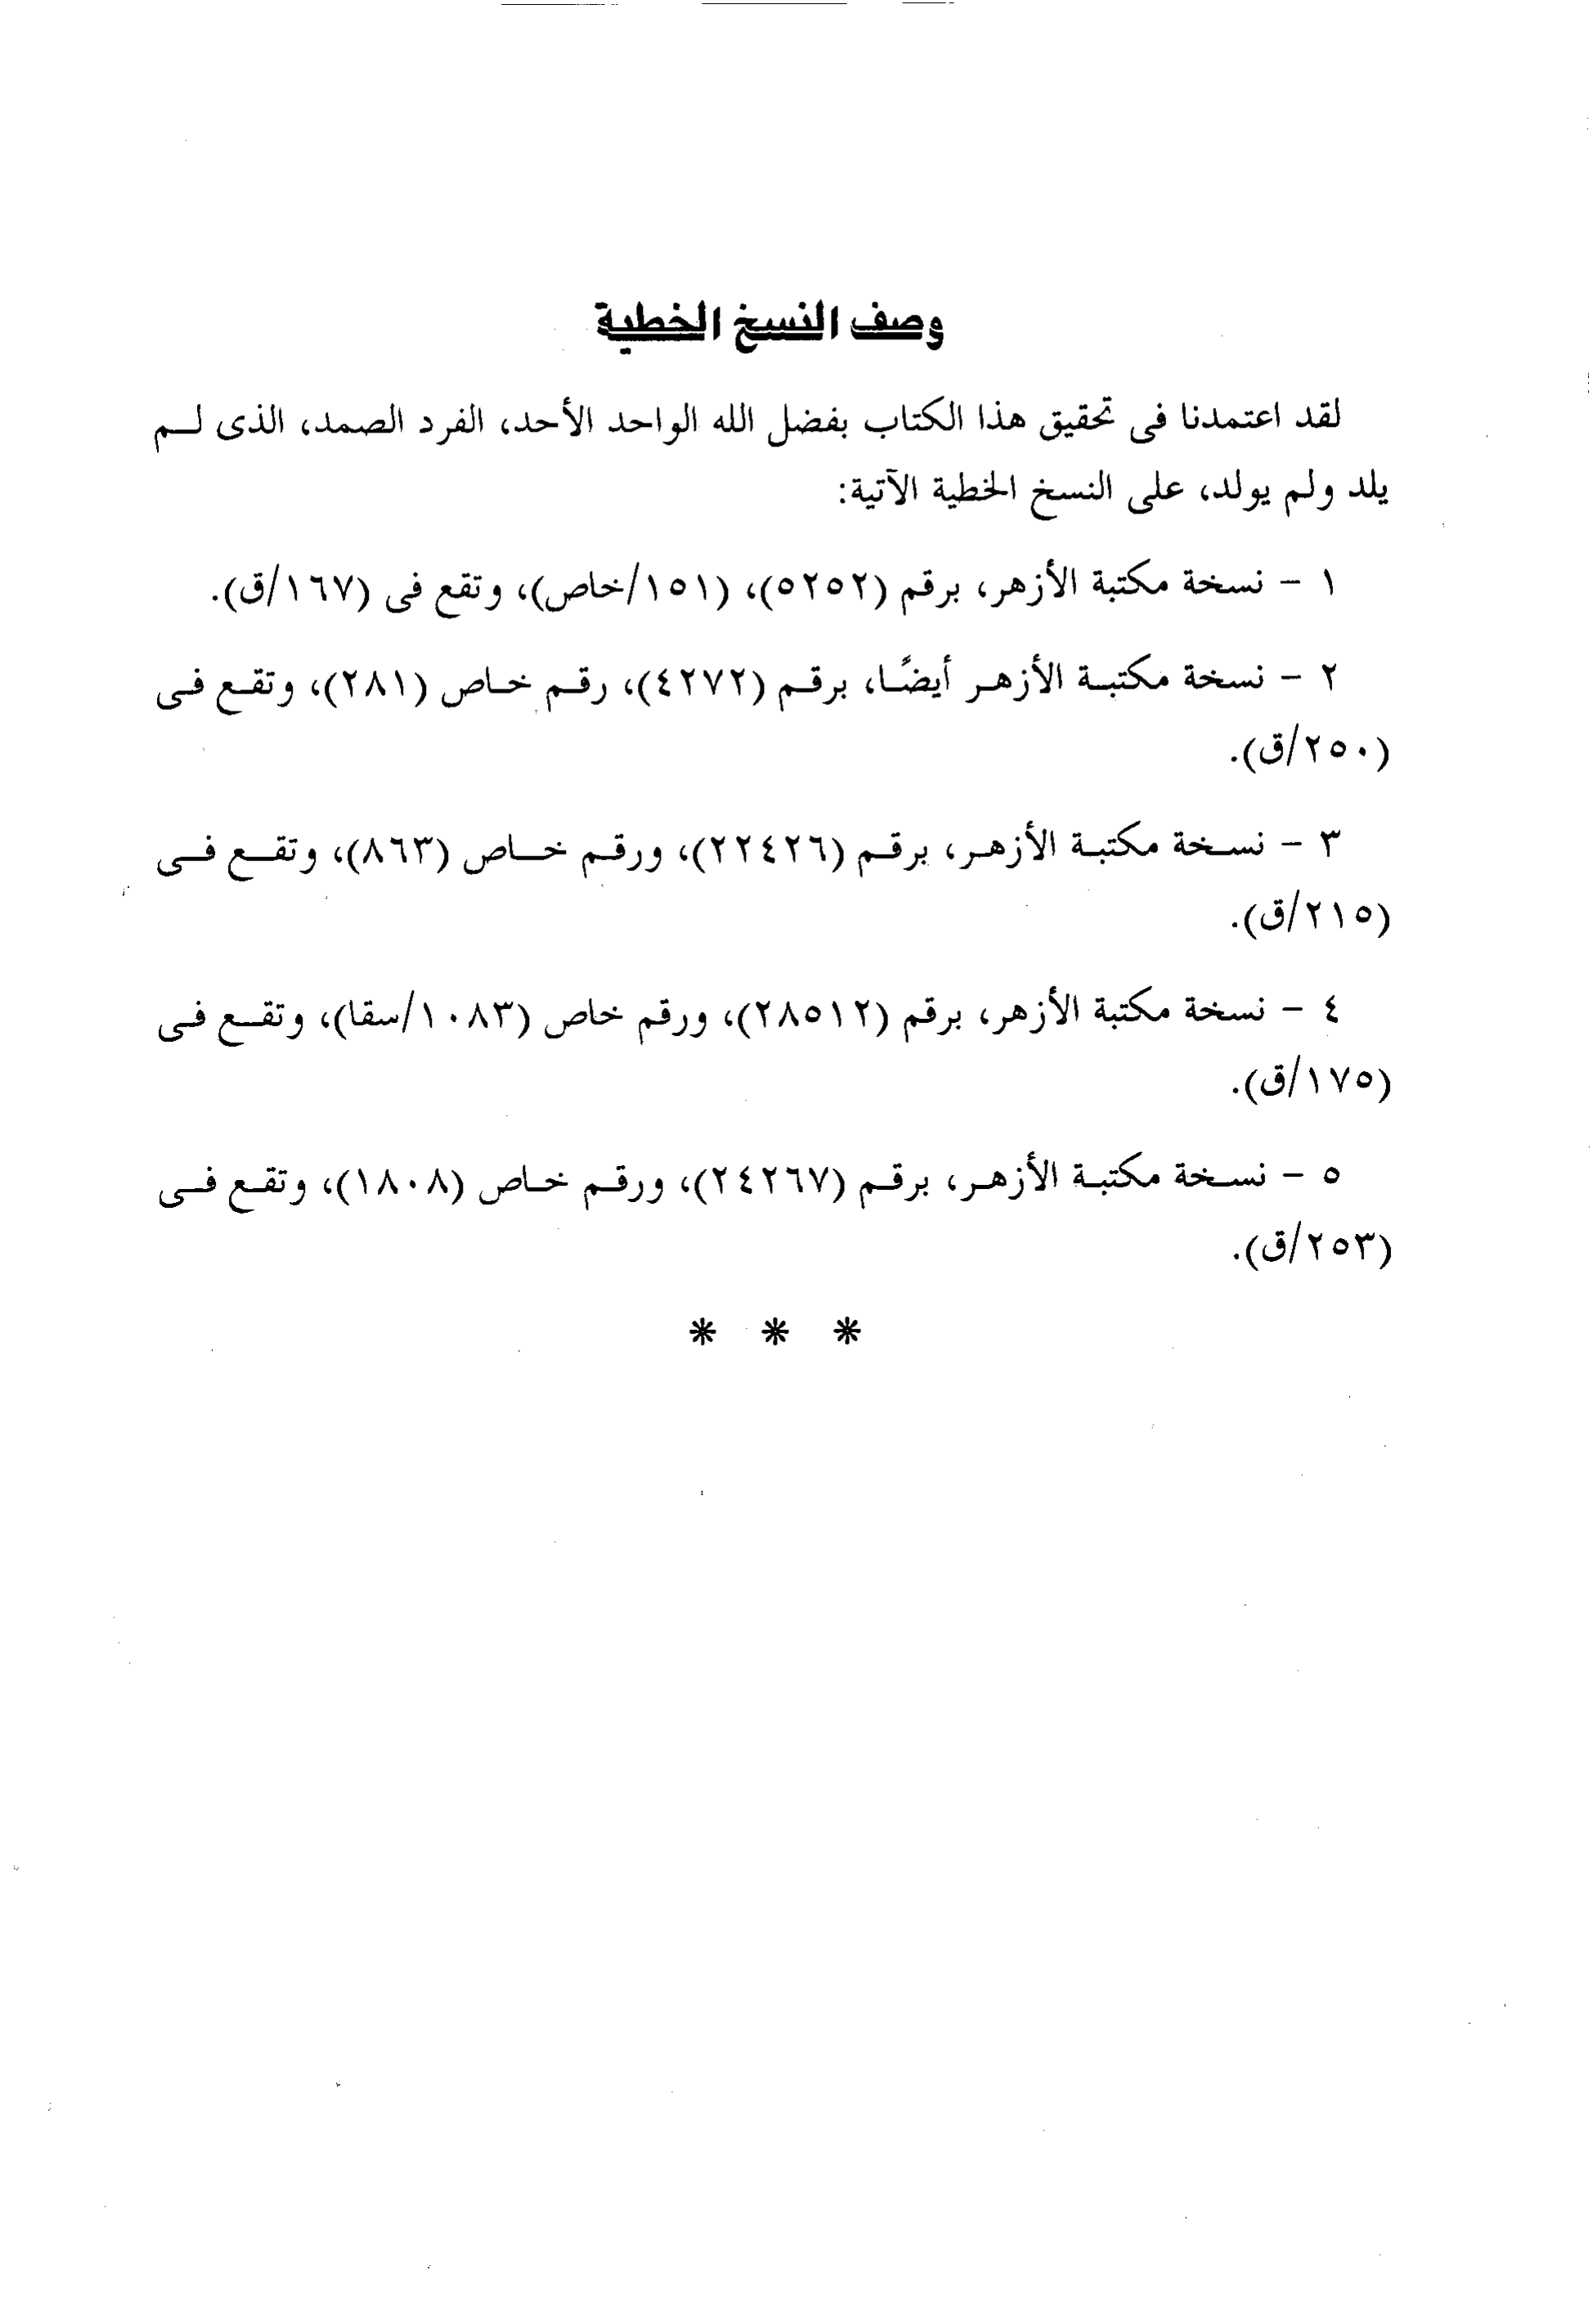 وصف النسخ الخطية
لقد اعتمدنا فى تحقيق هذا الكتاب بفضل الله الواحد الأحد، الفرد الصمد، الذى لم
يلد ولم يولد، على النسخ الخطية الآتية:
١ - نسخة مكتبة الأزهر، برقم (٥٢٥٢)، (١٥١/خاص)، وتقع فى (١٦٧/ق).
٢ - نسخة مكتبة الأزهر أيضًا، برقم (٤٢٧٢)، رقم خاص (٢٨١)، وتقع فى
(٢٥٠/ق).
٣ - نسخة مكتبة الأزهر، برقم (٢٢٤٢٦)، ورقم خاص (٨٦٣)، وتقع فى
(٢١٥/ق).
٤ - نسخة مكتبة الأزهر، برقم (٢٨٥١٢)، ورقم خاص (١٠٨٣/سقا)، وتقع فى
(١٧٥/ق).
٥ - نسخة مكتبة الأزهر، برقم (٢٤٢٦٧)، ورقم خاص (١٨٠٨)، وتقع فى
(٢٥٣/ق).
* * *